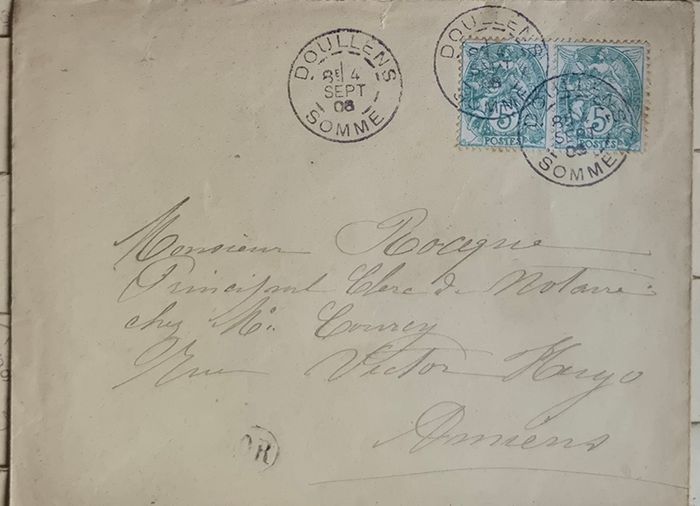 DOULLENS
8E 4
SEPT
06
SOMME
DOULLENS
DOULLENS
8E
SEPT
SOMME
5
POSTES
5
POSTES
Monsieur Rocque
Principal Clerc de Notaire
chez Me Courcy
Rue Victor Hugo
Amiens
OR